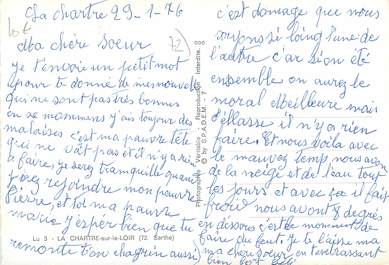 La chartre 29-1-76
Ma chère Soeur
je t'envoie un petit mot
pour te donné de mes nouvelles
qui ne sont pas très bonnes
en se moments j'ais toujour des
malaises c'est ma pauvre tête
qui ne vât pas et il n'y a rien
a faire, je serez tranquille quand
j'orez rejoindre mon pauvre
Pierre, et toi ma pauvre
marie j'espèr bien que tu
remonte ton chagrin aussi
Lu 3 - LA CHARTRE-sur-le-LOIR (72. Sarthe)
Photographie Véritable - Reproduction Interdite.
© by S.P.A.D.E.M.
c'est domage que nous
soyons si loing l'une de
l'autre c'ar si on été
ensemble on aurez le
moral meilleure mais
d'éllasse il n'y a rien
faire. Et nous voila avec
le mauvez temps nous avons
de la neige et de l'eau tout
les jours et avec ça il fait
froid nous avont 8 degrés
en dessous c'est le moment de
faire du feut. Je te laisse ma
ma chère soeur en t'embrassant
bien fort